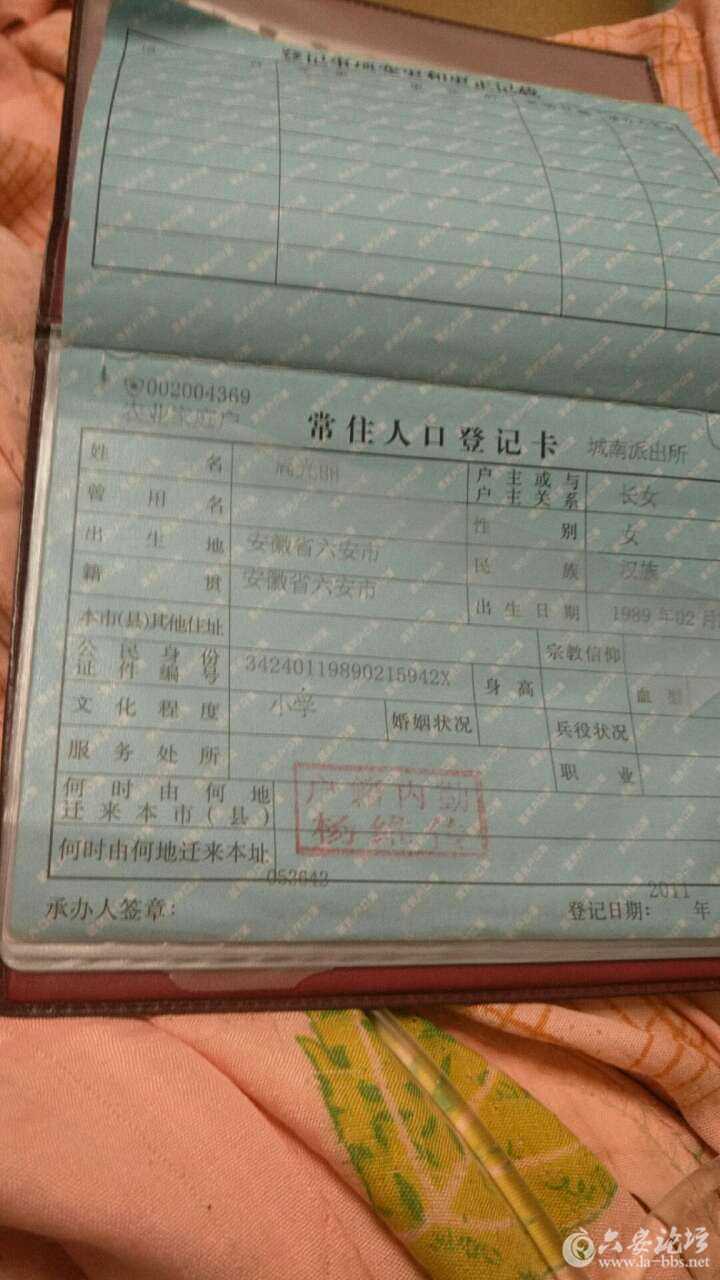 登记事项变更和更正记载
002004369
农业家庭户
常住人口登记卡 城南派出所
姓名 户主或与户主关系 长女
曾用名 性别 女
出生地 安徽省六安市 民族 汉族
籍贯 安徽省六安市 出生日期 1989年02月
本市(县)其他住址 宗教信仰
公民身份证件编号 34240119890215942X 身高 血型
文化程度 小学 婚姻状况 兵役状况
服务处所 职业
何时由何地迁来本市(县)
户籍内勤
何时由何地迁来本址
053643
承办人签章: 登记日期: 2011 年
六安论坛
www.la-bbs.net